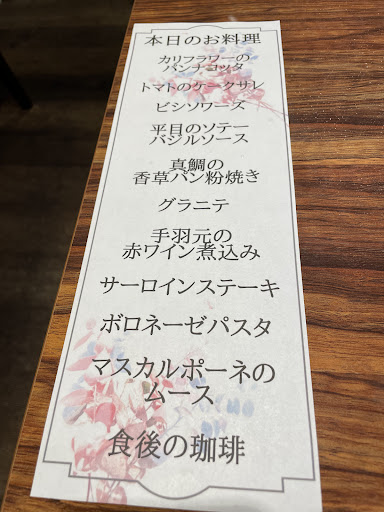 本日のお料理
カリフラワーの
パンナコッタ
トマトのケークサレ
ビシソワーズ
平目のソテー
バジルソース
真鯛の
香草パン粉焼き
グラニテ
手羽元の
赤ワイン煮込み
サーロインステーキ
ボロネーゼパスタ
マスカルポーネの
ムース
食後の珈琲